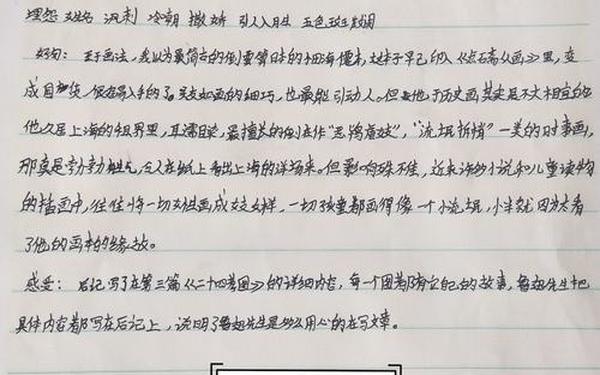 埋怨 姓名 讽刺 冷嘲 撒娇 引人入胜 五色斑斓
好句：至于画法，我以为最简古的倒要算日本的小田海僊本，这本子早已印入《点石斋丛画》里，变
成国货，很容易入手的了。吴友如画的细巧，也最能引动人。但他于历史画其实是不大相宜的
他久居上海的租界里，耳濡目染，最擅长的倒在作“恶鸨虐妓”，“流氓拆梢”一类的时事画，
那真是勃勃有生气，令人在纸上看出上海的洋场来。但影响殊不佳，近来许多小说和儿童读物
的插画中，往往将一切女性画成妓女样，一切孩童都画得像一个小流氓，大半就因为太看
了他的画本的缘故。
感受：后记写了在第三篇《二十四孝图》的详细内容，每一个图都有它自己的故事，鲁迅先生把
具体内容都写在后记上，说明了鲁迅先生是多么用心的在写文章。